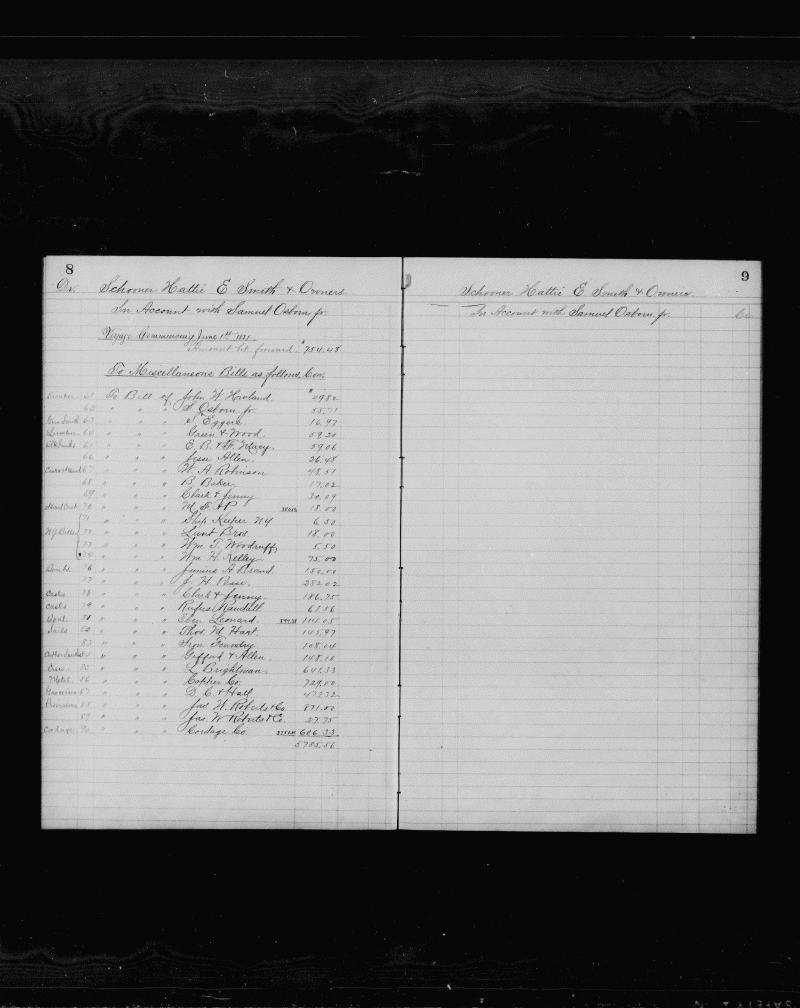 8
Dr. Schooner Hattie E Smith & Owners
In Account with Samuel Osborn, jr.
Voyage Commencing June 1st
Amount bt forward $754.48
To Miscellaneous Bills as follows, Con.
61 To Bill of John W. Howland $49.82
62 " " " S. Osborn jr. 55.71
63 " " " S. Eggers 16.97
64 " " " Green & Wood. 59.20
65 " " " E. B. & F. Macy. 59.06
66 " " " Jesse Allen. 26.48
67 " " " W. A Robinson 48.51
68 " " " B. Baker. 17.02
69 " " " Clark & Jenny 30.09
70 " " " 18.00
71 " " " Ship Keeper N.Y 6.50
N.Y. Bills 72 " " " Lunt Bros 18.00
73 " " " Wm. T. Woodruff, 5.50
74 " " " Wm. H. Kelley 75.00
76 " " " Junius A Brand. 150.00
77 " " " J. H. Pease. 252.02
Casks 78 " " " Clark & Jenny. 186.75
Casks 79 " " " Rufus Randall. 65.56
Boat. " " " Eben Leonard. 114.05
Sails " " " Thos. M. Hart. 145.97
83 " " " Iron Foundry 108.04
" " " Gifford & Allen. 148.10
85 " " " L. Brightman. 641.33
Metal. 86 " " " Copper Co. 729.00
Groceries 87 " " " D. C. & Hall 473.72
Provisions 88 " " " Jas. W. Roberts & Co. 871.00
89 " " " Jas. W Roberts & Co. 27.75
Cordage 90 " " " Cordage Co. 606.33
5785.56
9
Schooner Hattie E Smith & Owners.
In Account with Samuel Osborn, jr. Cr.